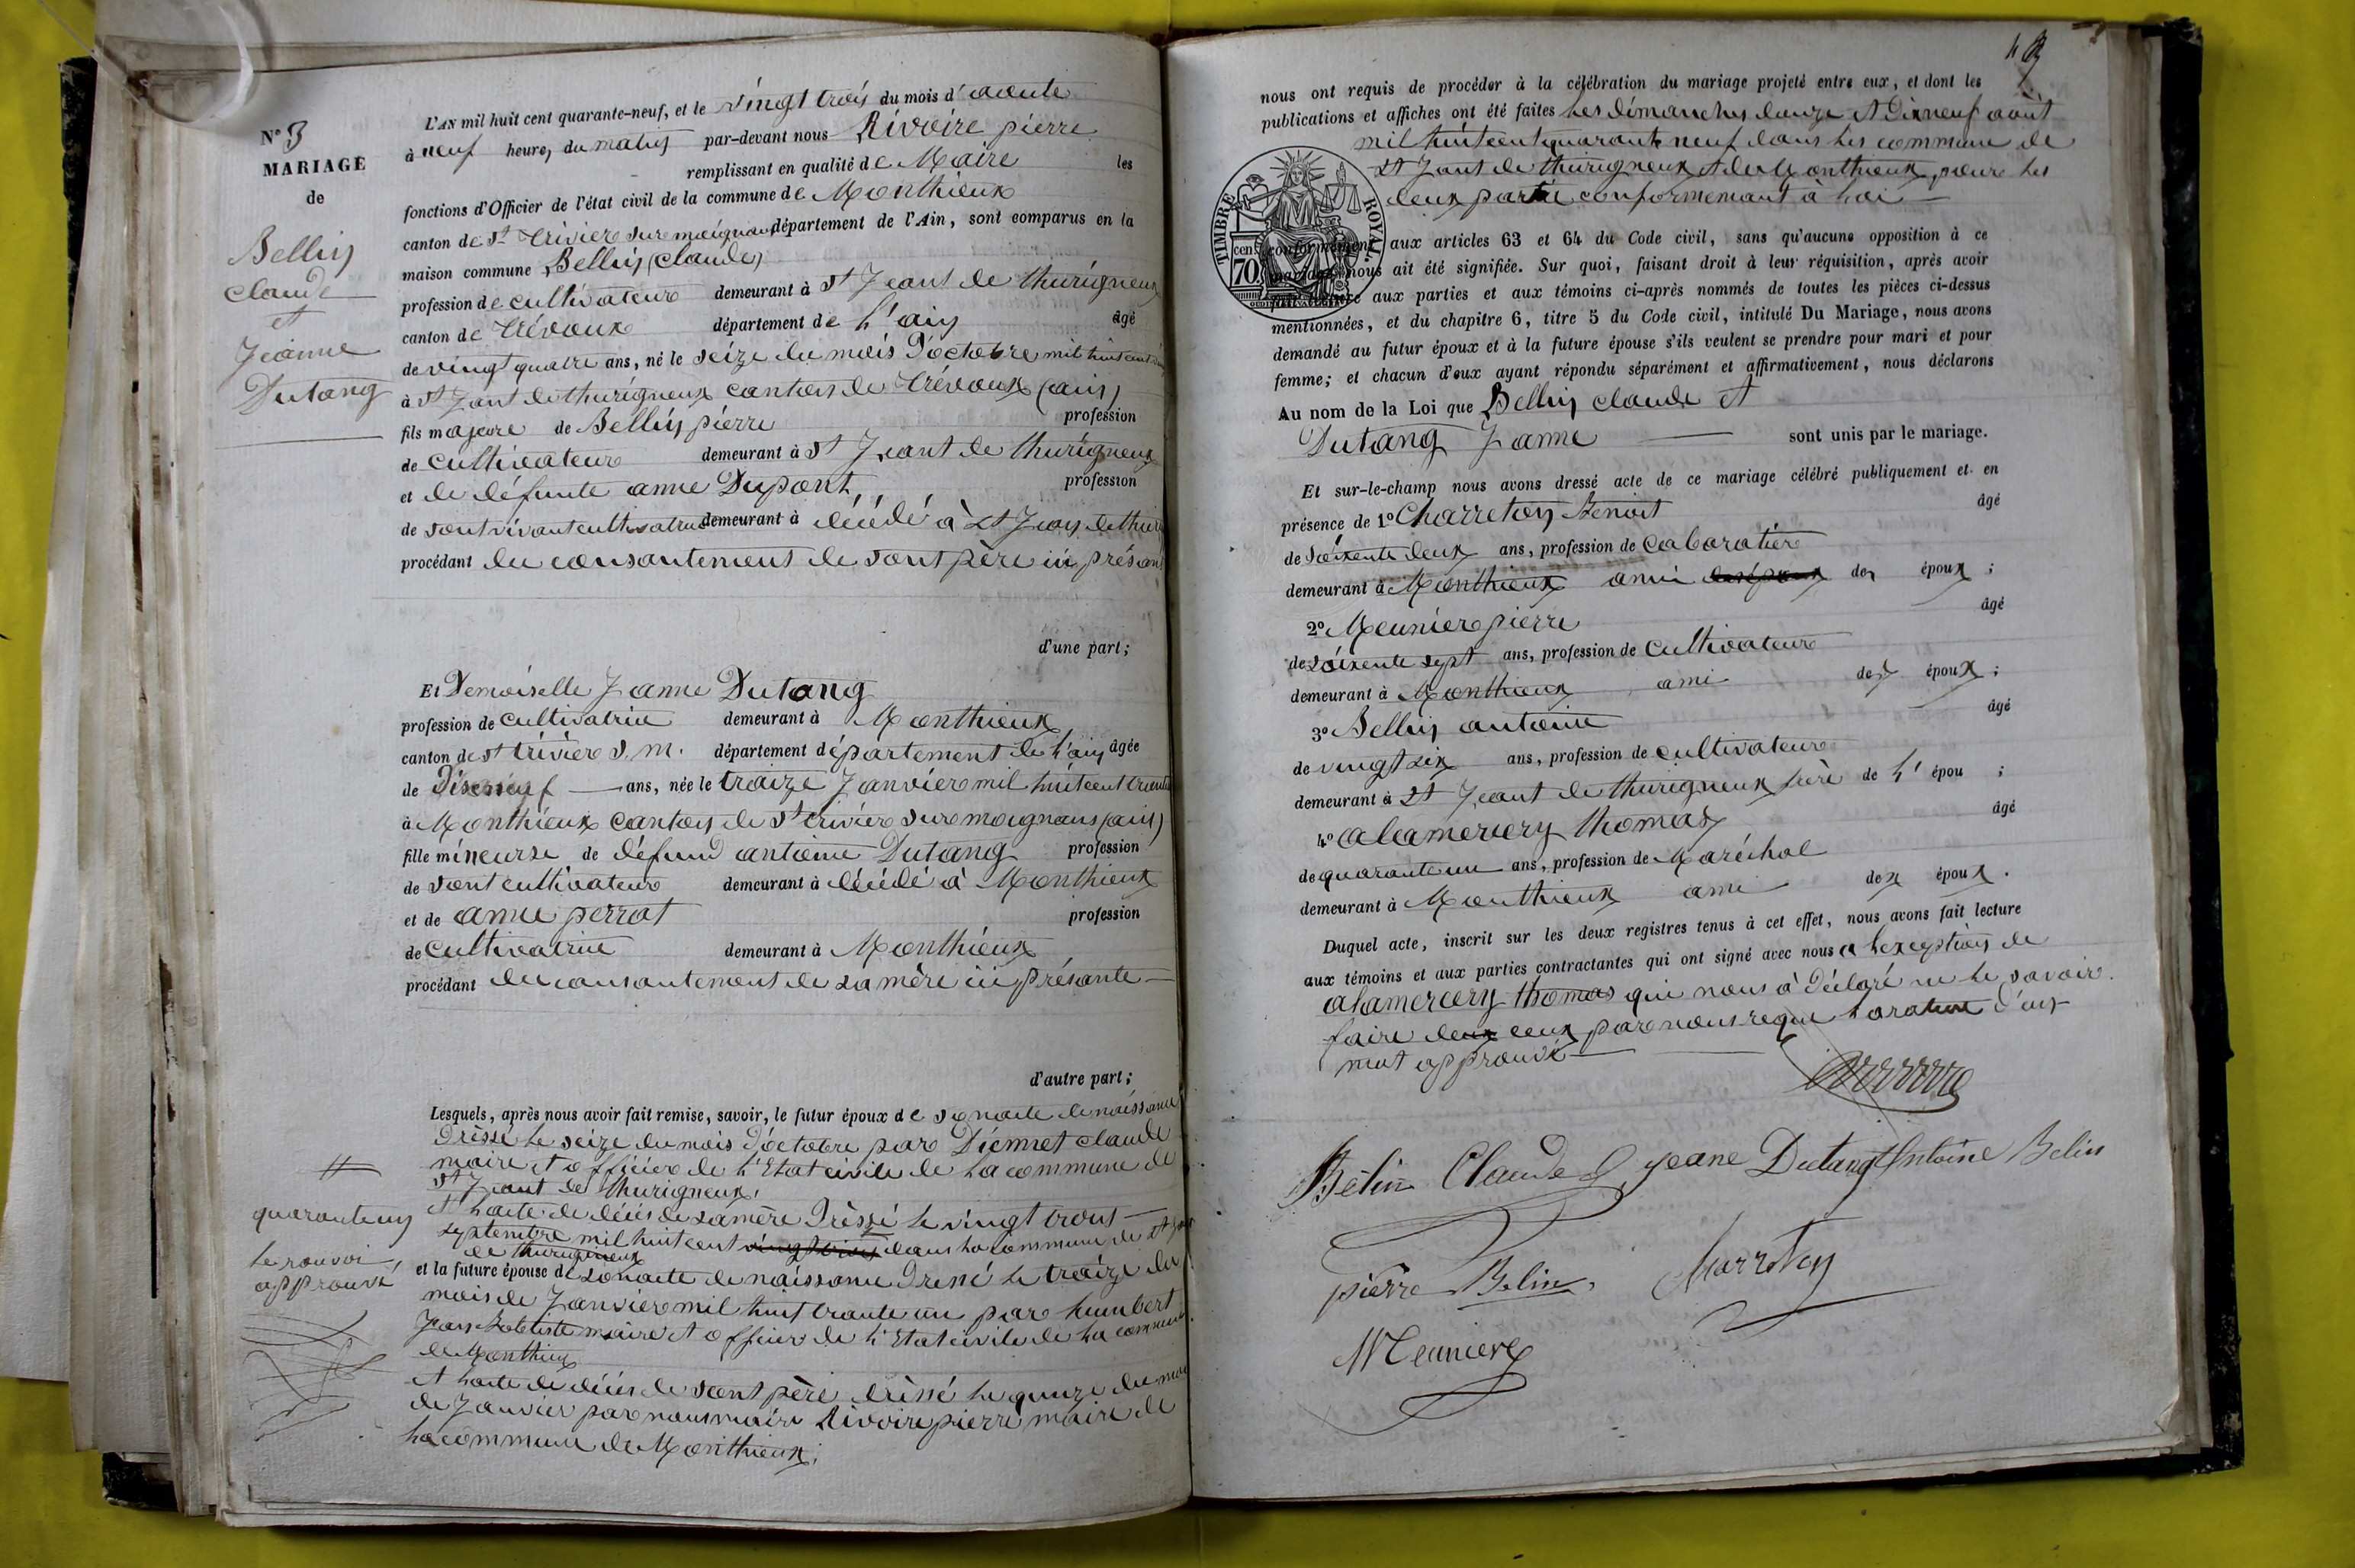 N° 3
MARIAGE
de
Bellin
Claude
et
Jeanne
Dutang
L'AN mil huit cent quarante-neuf, et le vingt trois du mois d'aoute
à neuf heures du matin par-devant nous Rivoire pierre
remplissant en qualité de Maire les
fonctions d'Officier de l'état civil de la commune de Monthieux
canton de St trivier sur moignans département de l'Ain, sont comparus en la
maison commune Bellin (claude)
profession de cultivateur demeurant à St Jeant de thurigneux
canton de trévoux département de l'ain âgé
de vingt quatre ans, né le seize du mois d'octobre mil huit cent
à St Jant de thurigneux canton de trévoux (ain)
fils majeure de Bellin pierre profession
de cultivateur demeurant à St Jeant de thurigneux
et de défunte anne Dupont profession
de sont vivant cultivatrice demeurant à décédé à St Jean de thuri
procédant du consantement de sont père ici présant
d'une part;
Et Demoiselle Janne Dutang
profession de cultivatrice demeurant à Monthieux
canton de st trivier s. m. département département de l'ain âgée
de Diseneuf ans, née le traize Janvier mil huit cent trente
à Monthieux canton de st trivier sur moignans (ain)
fille mineurse de défund antoine Dutang profession
de sont cultivateur demeurant à décédé à Monthieux
et de anne perrat profession
de cultivatrice demeurant à Monthieux
procédant du consantement de sa mère ici présante
d'autre part;
Lesquels, après nous avoir fait remise, savoir, le futur époux de son acte de naissance
Dressé le seize du mois d'octobre par Diennet claude
maire et officier de l'Etat civile de la commune de
St Jeant de thurigneux,
et l'acte de décés de sa mère Dréssé le vingt trois
septembre mil huit cent vingt trois dans la commune de St Jant
de thurigneux
quarante un
le ranvoi
approuvé
et la future épouse de son acte de naissance Dressé le traize du
mois de Janvier mil huit trante un par humbert
Jean Batetiste maire et officier de l'Etat civile de la commune
de Monthieux
et l'acte de décés de sont père dressé le quinze du mois
de Janvier par nous maire Rivoire pierre maire de
la commune de Monthieux;
nous ont requis de procéder à la célébration du mariage projeté entre eux, et dont les
publications et affiches ont été faites les dimanches douze et Dixneuf août
mil huit cent quarante neuf dans les commune de
St Jant de thurigneux et de Monthieux, pour les
deux partie conformemant à loi
TIMBRE ROYAL
70 cent.
conformément aux articles 63 et 64 du Code civil, sans qu'aucune opposition à ce
mariage nous ait été signifiée. Sur quoi, faisant droit à leur réquisition, après avoir
aux parties et aux témoins ci-après nommés de toutes les pièces ci-dessus
mentionnées, et du chapitre 6, titre 5 du Code civil, intitulé Du Mariage, nous avons
demandé au futur époux et à la future épouse s'ils veulent se prendre pour mari et pour
femme; et chacun d'eux ayant répondu séparément et affirmativement, nous déclarons
Au nom de la Loi que Bellin claude et
Dutang Janne sont unis par le mariage.
Et sur-le-champ nous avons dressé acte de ce mariage célébré publiquement et en
présence de 1° Charreton Benoit âgé
de soixente deux ans, profession de Cabaratier
demeurant à Monthieux ami des époux;
2° Meunier pierre âgé
de soixente sept ans, profession de cultivateur
demeurant à Monthieux ami des époux;
3° Bellin antoine âgé
de vingt six ans, profession de cultivateur
demeurant à St Jeant de thurigneux frère de l'épou;
4° alamercery thomas âgé
de quarante un ans, profession de Maréchal
demeurant à Monthieux ami des époux.
Duquel acte, inscrit sur les deux registres tenus à cet effet, nous avons fait lecture
aux témoins et aux parties contractantes qui ont signé avec nous a l'exeption de
alamercery thomas qui nous à Déclaré ne le savoir
faire de ceux par nous requi la rature d'un
mot approuvé
Bélin Claude Jeane Dutang Antoine Belin
pierre Belin Charreton
Meunier